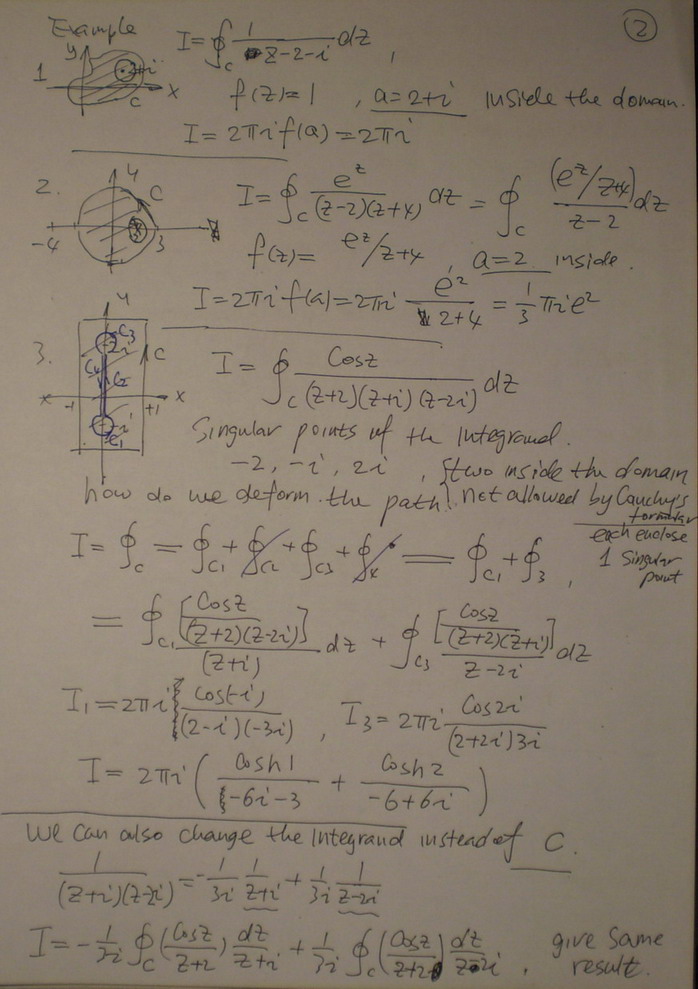 Example
②
I = ∮_C 1/(z-2-i) dz ,
y
2+i
1
C
x
f(z)=1 , a=2+i inside the domain.
I = 2πi f(a) = 2πi
2.
y
C
-4
3
I = ∮_C e^z/((z-2)(z+4)) dz = ∮_C (e^z/z+4)/(z-2) dz
f(z) = e^z/z+4 , a=2 inside.
I = 2πi f(a) = 2πi e^2/(2+4) = 1/3 πi e^2
3.
y
C3
2i
C
C4
C2
x
-1
+1
x
-i
C1
I = ∮_C Cosz/((z+2)(z+i)(z-2i)) dz
Singular points of the integrand.
-2, -i, 2i , {two inside the domain
how do we deform the path? not allowed by Cauchy's
formular
each enclose
1 Singular
point
I = ∮_C = ∮_C1 + ∮_C2 + ∮_C3 + ∮_4 = ∮_C1 + ∮_3 ,
= ∮_C1 [Cosz/((z+2)(z-2i))]/(z+i) dz + ∮_C3 [Cosz/((z+2)(z+i))]/(z-2i) dz
I1 = 2πi Cos(-i)/((2-i)(-3i)) , I3 = 2πi Cos2i/((2+2i)3i)
I = 2πi ( Cosh1/(-6i-3) + Cosh2/(-6+6i) )
We can also change the integrand instead of C.
1/((z+i)(z-2i)) = -1/3i 1/(z+i) + 1/3i 1/(z-2i)
I = -1/3i ∮_C (Cosz/z+2) dz/(z+i) + 1/3i ∮_C (Cosz/z+2) dz/(z-2i) , give same
result.